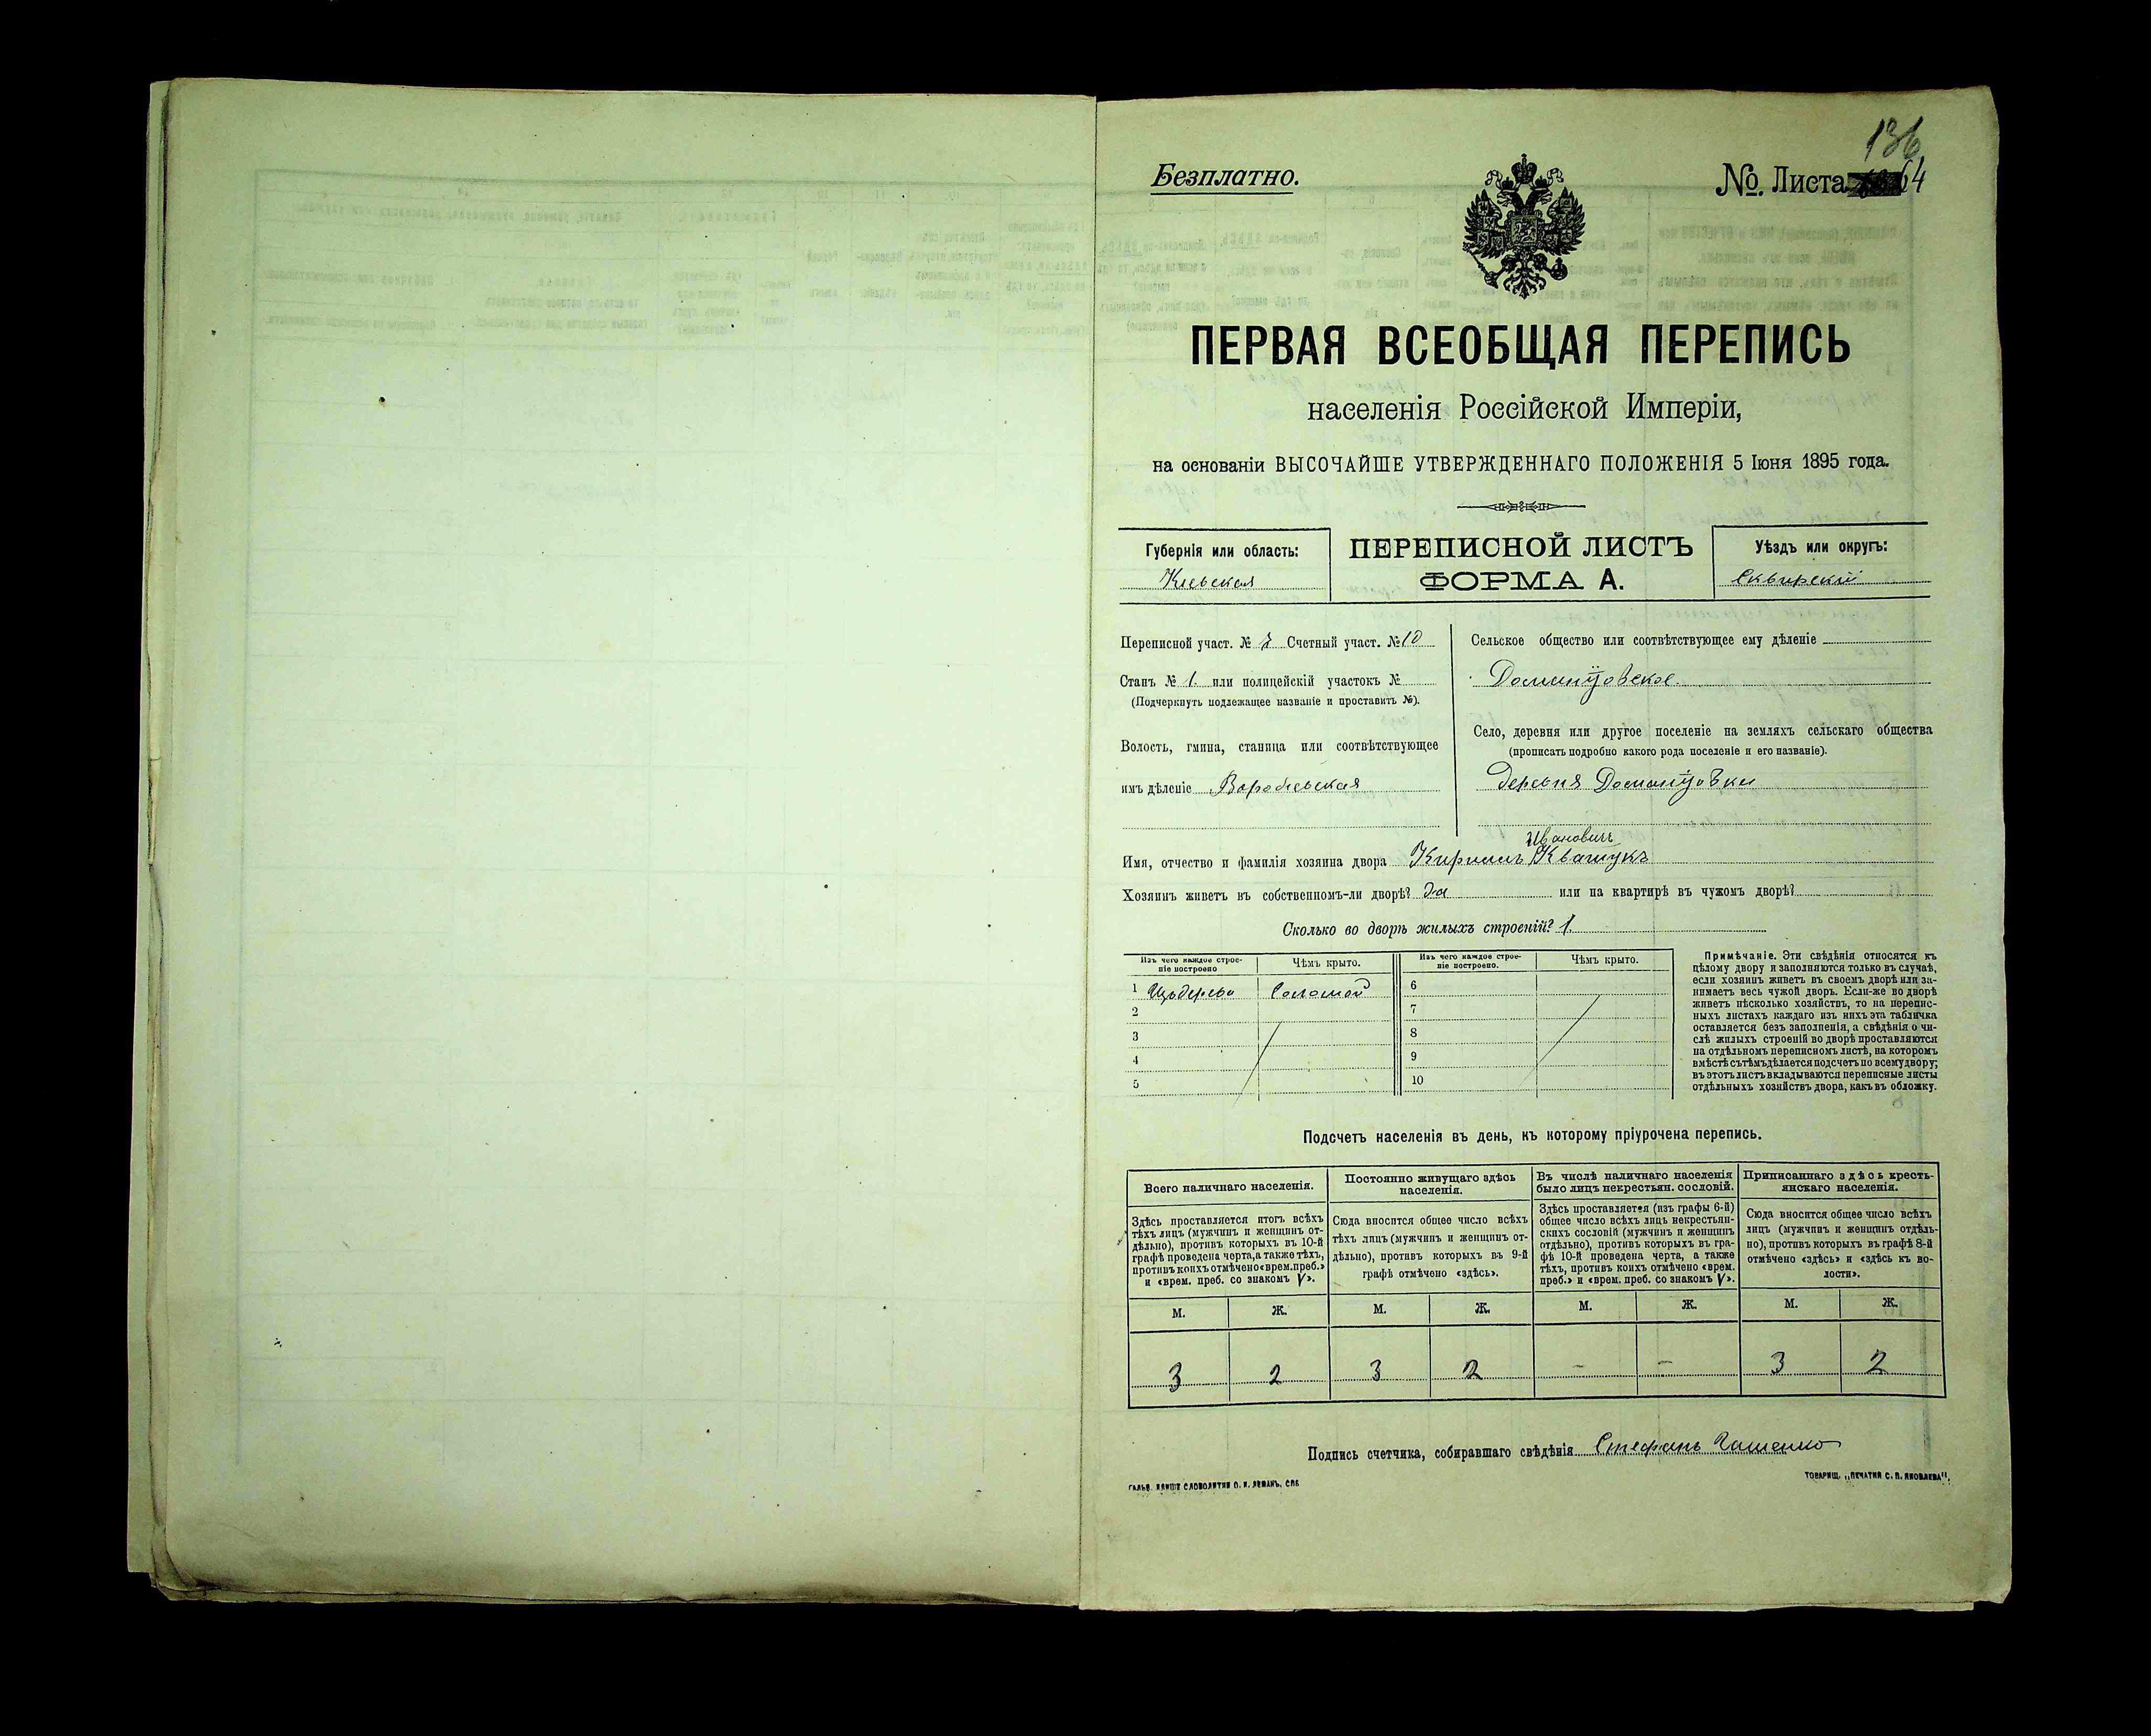 136
Безплатно.
№ Листа 64
ПЕРВАЯ ВСЕОБЩАЯ ПЕРЕПИСЬ
населенія Россійской Имперіи,
на основаніи ВЫСОЧАЙШЕ УТВЕРЖДЕННАГО ПОЛОЖЕНІЯ 5 Іюня 1895 года.
Губернія или область:
Кіевская
ПЕРЕПИСНОЙ ЛИСТЪ
ФОРМА А.
Уѣздъ или округъ:
Сквирскій
Переписной участ. № Счетный участ. № 10
Станъ № 1 или полицейскій участокъ №
(Подчеркнуть подлежащее названіе и проставить №).
Волость, гмина, станица или соотвѣтствующее
имъ дѣленіе
Сельское общество или соотвѣтствующее ему дѣленіе
Село, деревня или другое поселеніе на земляхъ сельскаго общества
(прописать подробно какого рода поселеніе и его названіе).
Деревня
Ивановичъ
Имя, отчество и фамилія хозяина двора Кириллъ Квашукъ
Хозяинъ живетъ въ собственномъ-ли дворѣ? да или на квартирѣ въ чужомъ дворѣ?
Сколько во дворѣ жилыхъ строеній? 1.
Изъ чего каждое строе-
ніе построено
Чѣмъ крыто.
Изъ чего каждое строе-
ніе построено.
Чѣмъ крыто.
1 Изъ дерева Соломой
2
3
4
5
6
7
8
9
10
Примѣчаніе. Эти свѣдѣнія относятся къ
цѣлому двору и заполняются только въ случаѣ,
если хозяинъ живетъ въ своемъ дворѣ или за-
нимаетъ весь чужой дворъ. Если-же во дворѣ
живетъ нѣсколько хозяйствъ, то на перепис-
ныхъ листахъ каждаго изъ нихъ эта табличка
оставляется безъ заполненія, а свѣдѣнія о чи-
слѣ жилыхъ строеній во дворѣ проставляются
на отдѣльномъ переписномъ листѣ, на которомъ
вмѣстѣ съ тѣмъ дѣлается подсчетъ по всему двору;
въ этотъ листъ вкладываются переписные листы
отдѣльныхъ хозяйствъ двора, какъ въ обложку.
Подсчетъ населенія въ день, къ которому пріурочена перепись.
Всего наличнаго населенія.
Постоянно живущаго здѣсь
населенія.
Въ числѣ наличнаго населенія
было лицъ некрестьян. сословій.
Приписаннаго здѣсь кресть-
янскаго населенія.
Здѣсь проставляется итогъ всѣхъ
тѣхъ лицъ (мужчинъ и женщинъ от-
дѣльно), противъ которыхъ въ 10-й
графѣ проведена черта, а также тѣхъ,
противъ коихъ отмѣчено «врем. преб.»
и «врем. преб. со знакомъ V».
Сюда вносится общее число всѣхъ
тѣхъ лицъ (мужчинъ и женщинъ от-
дѣльно), противъ которыхъ въ 9-й
графѣ отмѣчено «здѣсь».
Здѣсь проставляется (изъ графы 6-й)
общее число всѣхъ лицъ некрестьян-
скихъ сословій (мужчинъ и женщинъ
отдѣльно), противъ которыхъ въ гра-
фѣ 10-й проведена черта, а также
тѣхъ, противъ коихъ отмѣчено «врем.
преб.» и «врем. преб. со знакомъ V».
Сюда вносится общее число всѣхъ
лицъ (мужчинъ и женщинъ отдѣль-
но), противъ которыхъ въ графѣ 8-й
отмѣчено «здѣсь» и «здѣсь въ во-
лости».
М. Ж. М. Ж. М. Ж. М. Ж.
3 2 3 2 – – 3 2
Подпись счетчика, собиравшаго свѣдѣнія Стефанъ
ГАЛЬВ. КЛИШЕ СЛОВОЛИТНИ О. И. ЛЕМАНЪ, СПБ
ТОВАРИЩ. „ПЕЧАТНЯ С. П. ЯКОВЛЕВА“.